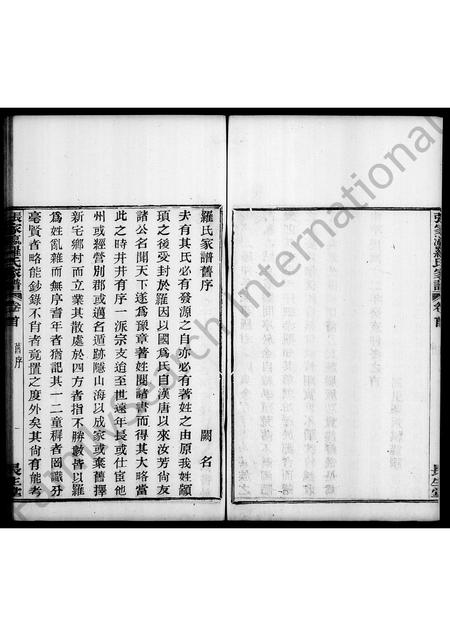 張家灣羅氏家譜
卷首
長生堂
羅氏家譜舊序
闕名
夫有其氏必有發源之自亦必有著姓之由原我姓顓
頊之後受封於羅因以國為氏自漢唐以來汝芳尚友
諸公名聞天下遂為豫章著姓閱諸書而得其大略當
此之時井井有序一派宗支迨至世遠年長或仕宦他
州或經營別郡或適名遁跡隱山海以成家或棄舊擇
新宅鄉村而立業其散處於四方者指不勝數皆以羅
為姓亂雜而無序耆年者猶記其一二童穉者罔識分
毫賢者略能鈔錄不肖者竟置之度外矣其尚有能考
張家灣羅氏家譜
卷首
舊序
一
長生堂
FamilySearch International